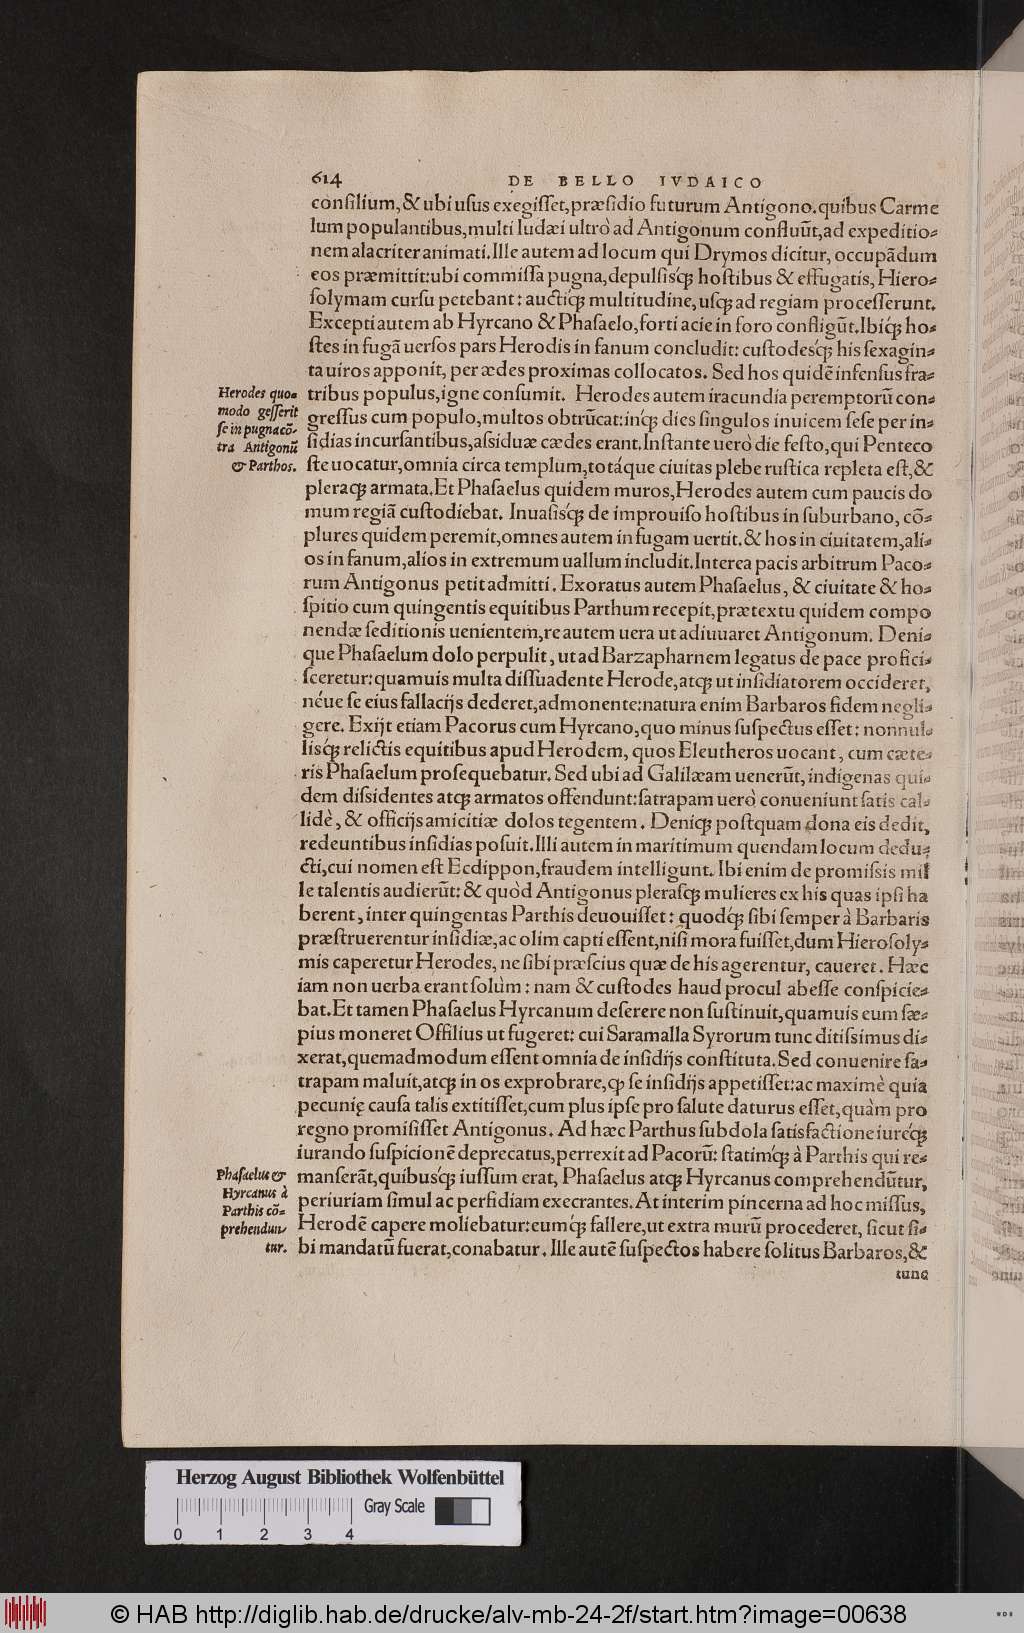 614 DE BELLO IVDAICO
conſilium, & ubi uſus exegiſſet, præſidio futurum Antigono. quibus Carme
lum populantibus, multi Iudæi ultrò ad Antigonum confluũt, ad expeditio-
nem alacriter animati. Ille autem ad locum qui Drymos dicitur, occupãdum
eos præmittit: ubi commiſſa pugna, depulſisq́; hoſtibus & effugatis, Hiero-
ſolymam curſu petebant: auctiq́; multitudine, uſq; ad regiam proceſſerunt.
Excepti autem ab Hyrcano & Phaſaelo, forti acie in foro confligũt. Ibiq́; ho-
ſtes in fugã uerſos pars Herodis in fanum concludit: cuſtodesq́; his ſexagin-
ta uiros apponit, per ædes proximas collocatos. Sed hos quidẽ infenſus fra-
tribus populus, igne conſumit. Herodes autem iracundia peremptorũ con-
greſſus cum populo, multos obtrũcat: inq́; dies ſingulos inuicem ſeſe per in-
ſidias incurſantibus, aſsiduæ cædes erant. Inſtante uerò die feſto, qui Penteco
ſte uocatur, omnia circa templum, totáque ciuitas plebe ruſtica repleta eſt, &
pleraq; armata. Et Phaſaelus quidem muros, Herodes autem cum paucis do
mum regiã cuſtodiebat. Inuaſisq́; de improuiſo hoſtibus in ſuburbano, cõ-
plures quidem peremit, omnes autem in fugam uertit. & hos in ciuitatem, ali-
os in fanum, alios in extremum uallum includit. Interea pacis arbitrum Paco-
rum Antigonus petit admitti. Exoratus autem Phaſaelus, & ciuitate & ho-
ſpitio cum quingentis equitibus Parthum recepit, prætextu quidem compo
nendæ ſeditionis uenientem, re autem uera ut adiuuaret Antigonum. Deni-
que Phaſaelum dolo perpulit, ut ad Barzapharnem legatus de pace profici-
ſceretur: quamuis multa diſſuadente Herode, atq; ut inſidiatorem occideret,
néue ſe eius fallacijs dederet, admonente: natura enim Barbaros fidem negli-
gere. Exijt etiam Pacorus cum Hyrcano, quo minus ſuſpectus eſſet: nonnul-
lisq́; relictis equitibus apud Herodem, quos Eleutheros uocant, cum cæte-
ris Phaſaelum proſequebatur. Sed ubi ad Galilæam uenerũt, indigenas qui-
dem diſsidentes atq; armatos offendunt: ſatrapam uerò conueniunt ſatis cal-
lidè, & officijs amicitiæ dolos tegentem. Deniq; poſtquam dona eis dedit,
redeuntibus inſidias poſuit. Illi autem in maritimum quendam locum dedu-
cti, cui nomen eſt Ecdippon, fraudem intelligunt. Ibi enim de promiſsis mil
le talentis audierũt: & quòd Antigonus pleraſq; mulieres ex his quas ipſi ha
berent, inter quingentas Parthis deuouiſſet: quodq́; ſibi ſemper à Barbaris
præſtruerentur inſidiæ, ac olim capti eſſent, niſi mora fuiſſet, dum Hieroſoly-
mis caperetur Herodes, ne ſibi præſcius quæ de his agerentur, caueret. Hæc
iam non uerba erant ſolùm: nam & cuſtodes haud procul abeſſe conſpicie-
bat. Et tamen Phaſaelus Hyrcanum deſerere non ſuſtinuit, quamuis eum ſæ-
pius moneret Offilius ut fugeret: cui Saramalla Syrorum tunc ditiſsimus di-
xerat, quemadmodum eſſent omnia de inſidijs conſtituta. Sed conuenire ſa-
trapam maluit, atq; in os exprobrare, ꝙ ſe inſidijs appetiſſet: ac maximè quia
pecunię cauſa talis extitiſſet, cum plus ipſe pro ſalute daturus eſſet, quàm pro
regno promiſiſſet Antigonus. Ad hæc Parthus ſubdola ſatisfactione iureq́;
iurando ſuſpicionẽ deprecatus, perrexit ad Pacorũ: ſtatimq́; à Parthis qui re-
manſerãt, quibusq́; iuſſum erat, Phaſaelus atq; Hyrcanus comprehendũtur,
periuriam ſimul ac perfidiam execrantes. At interim pincerna ad hoc miſſus,
Herodẽ capere moliebatur: eumq́; fallere, ut extra murũ procederet, ſicut ſi-
bi mandatũ fuerat, conabatur. Ille autẽ ſuſpectos habere ſolitus Barbaros, &
tunc
Herodes quo-
modo geſſerit
ſe in pugna cõ-
tra Antigonũ
& Parthos.
Phaſaelus &
Hyrcanus à
Parthis cõ-
prehendun-
tur.
Herzog August Bibliothek Wolfenbüttel
Gray Scale
0 1 2 3 4
© HAB http://diglib.hab.de/drucke/alv-mb-24-2f/start.htm?image=00638